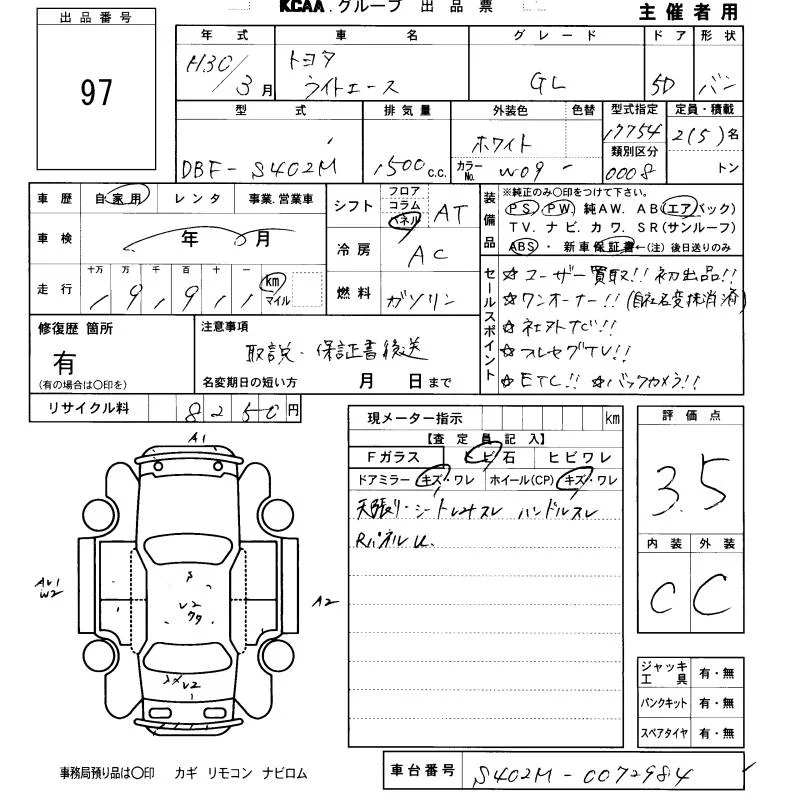 KCAA.グループ 出品票
主催者用
出品番号
97
年式 車名 グレード ドア 形状
H30/3月 トヨタ ライトエース GL 5D バン
型式 排気量 外装色 色替 型式指定 定員・積載
DBF-S402M 1,500c.c. ホワイト カラーNo. W09 17754 2(5)名
類別区分
0008 トン
車歴 自家用 レンタ 事業.営業車
シフト フロア コラム パネル AT
装備品 ※純正のみ○印をつけて下さい。
PS. PW. 純AW. AB(エアバック)
TV. ナビ. カワ. SR(サンルーフ)
ABS・新車保証書←(注)後日送りのみ
車検 年 月
冷房 AC
走行 十万 万 千 百 十 一
1 9 1 9 1 1 km マイル
燃料 ガソリン
セールスポイント
☆ユーザー買取!! 初出品!!
☆ワンオーナー!! (自社名変抹消済)
☆社外ナビ!!
☆フルセグTV!!
☆ETC!! ☆バックカメラ!!
修復歴 箇所
有
(有の場合は○印を)
注意事項
取説・保証書後送
名変期日の短い方 月 日まで
リサイクル料 8250円
現メーター指示 km
【査定員記入】
Fガラス ヒビ石 ヒビワレ
ドアミラー キズ・ワレ ホイール(CP) キズ・ワレ
天張り・シートレナスレ ハンドルスレ
RパネルU.
評価点
3.5
内装 外装
C C
A1
AU1
W2
A2
S
U2
クク
U2
ジャッキ工具 有・無
パンクキット 有・無
スペアタイヤ 有・無
事務局預り品は○印 カギ リモコン ナビロム
車台番号 S402M-0072984